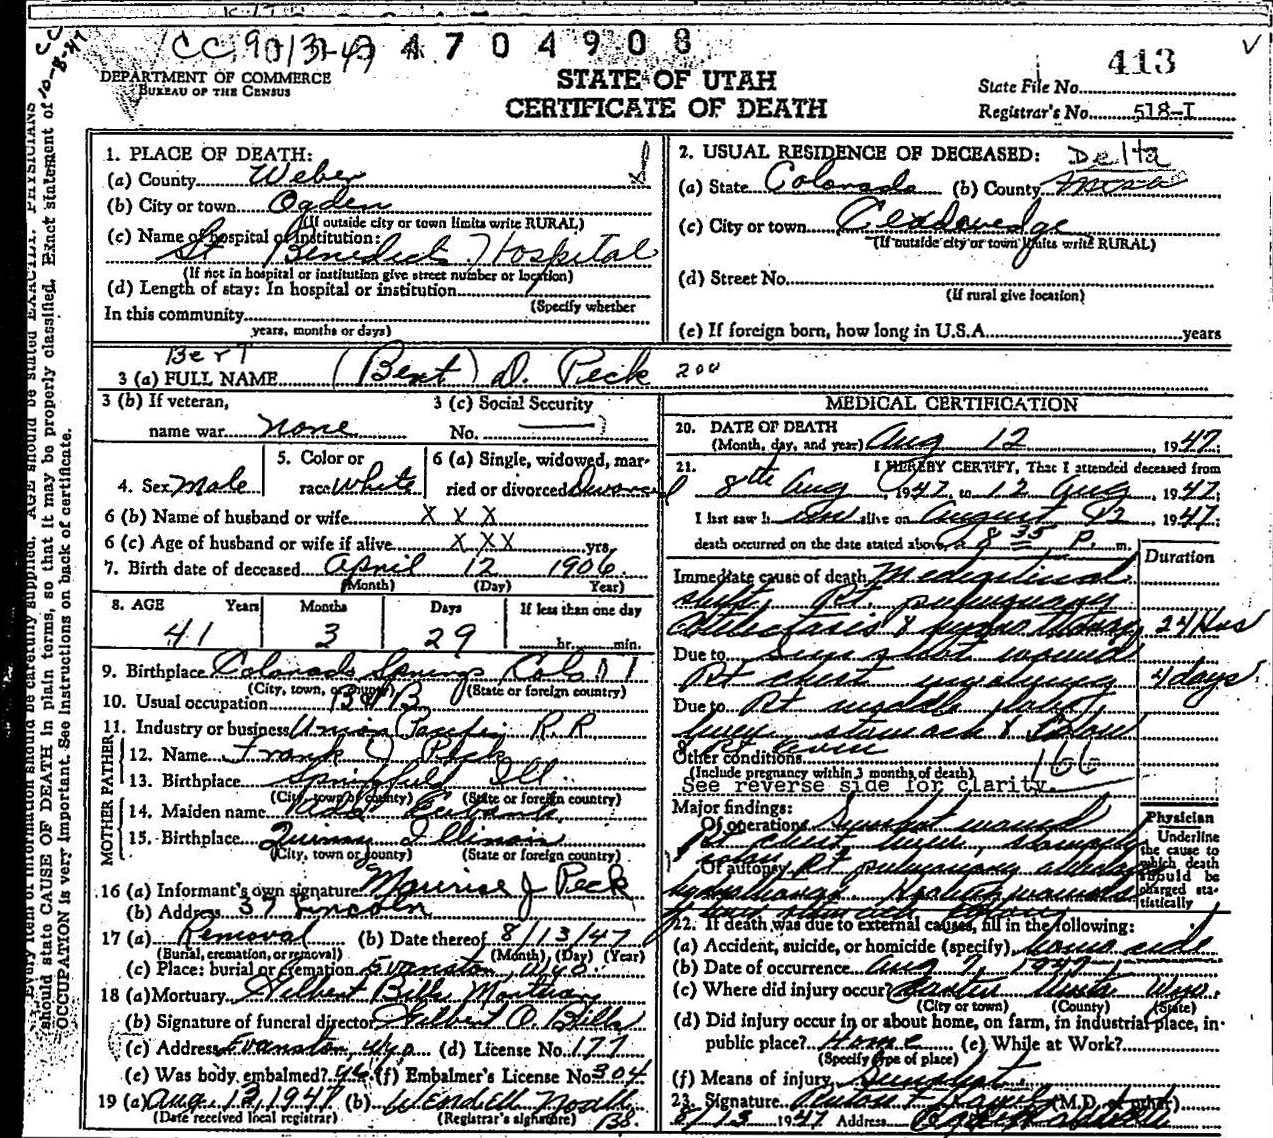 CC 9013-47 4704908
CC 10-8-47
413
DEPARTMENT OF COMMERCE
BUREAU OF THE CENSUS
STATE OF UTAH
CERTIFICATE OF DEATH
State File No.
Registrar's No. 518-I
1. PLACE OF DEATH:
(a) County Weber
(b) City or town Ogden
(If outside city or town limits write RURAL)
(c) Name of hospital or institution:
St Benedicts Hospital
(If not in hospital or institution give street number or location)
(d) Length of stay: In hospital or institution
(Specify whether
In this community
years, months or days)
2. USUAL RESIDENCE OF DECEASED: Delta
(a) State Colorado (b) County Mesa
(c) City or town
(If outside city or town limits write RURAL)
(d) Street No.
(If rural give location)
(e) If foreign born, how long in U.S.A. years
Bert
3 (a) FULL NAME (Bert) D. Peck 200
3 (b) If veteran,
name war none
3 (c) Social Security
No.
4. Sex Male
5. Color or
race White
6 (a) Single, widowed, mar-
ried or divorced Divorced
6 (b) Name of husband or wife X X X
6 (c) Age of husband or wife if alive X X X yrs.
7. Birth date of deceased April 12 1906
(Month) (Day) Year)
8. AGE Years Months Days If less than one day
41 3 29 hr. min.
9. Birthplace Colorado Springs, Colo
(City, town, or county) (State or foreign country)
10. Usual occupation
11. Industry or business Union Pacific R.R
FATHER
12. Name Frank O Peck
13. Birthplace Springfield Ill
(City, town or county) (State or foreign country)
MOTHER
14. Maiden name Eubank
15. Birthplace Quincy Illinois
(City, town or county) (State or foreign country)
16 (a) Informant's own signature Maurise J Peck
(b) Address 37 Lincoln
17 (a) Removal (b) Date thereof 8/13/47
(Burial, cremation, or removal) (Month), (Day) (Year)
(c) Place: burial or cremation Evanston, Wyo.
18 (a) Mortuary Gilbert Bills Mortuary
(b) Signature of funeral director Gilbert O. Bills
(c) Address Evanston Wyo (d) License No. 177
(e) Was body embalmed? yes (f) Embalmer's License No. 304
19 (a) Aug. 13, 1947 (b) Wendell
(Date received local registrar) (Registrar's signature)
MEDICAL CERTIFICATION
20. DATE OF DEATH
(Month, day, and year) Aug 12 1947
21. I HEREBY CERTIFY, That I attended deceased from
8th Aug, 1947, to 12 Aug, 1947;
I last saw him alive on August 12 1947;
death occurred on the date stated above, at 8 35 P. m.
Duration
Immediate cause of death Mediastinal
shift, Rt. pulmonary
atelectasis & hemothorax 24 Hrs
Due to Gunshot wound
Rt chest involving 4 days
Due to Rt middle lobe,
liver, stomach &
Other conditions
(Include pregnancy within 3 months of death) 166
See reverse side for clarity.
Major findings:
Of operations Gunshot wound
Rt chest liver, stomach
Of autopsy Rt pulmonary
Physician
Underline
the cause to
which death
should be
charged sta-
tistically
22. If death was due to external causes, fill in the following:
(a) Accident, suicide, or homicide (specify) homocide
(b) Date of occurrence Aug 7, 1947
(c) Where did injury occur? Uinta Wyo.
(City or town) (County) (State)
(d) Did injury occur in or about home, on farm, in industrial place, in
public place? Home (e) While at Work?
(Specify type of place)
(f) Means of injury Gunshot
23. Signature (M.D. or other)
8/13 1947 Address
Every item of information should be carefully supplied. AGE should be stated EXACTLY. PHYSICIANS
should state CAUSE OF DEATH in plain terms, so that it may be properly classified. Exact statement of
OCCUPATION is very important. See instructions on back of certificate.